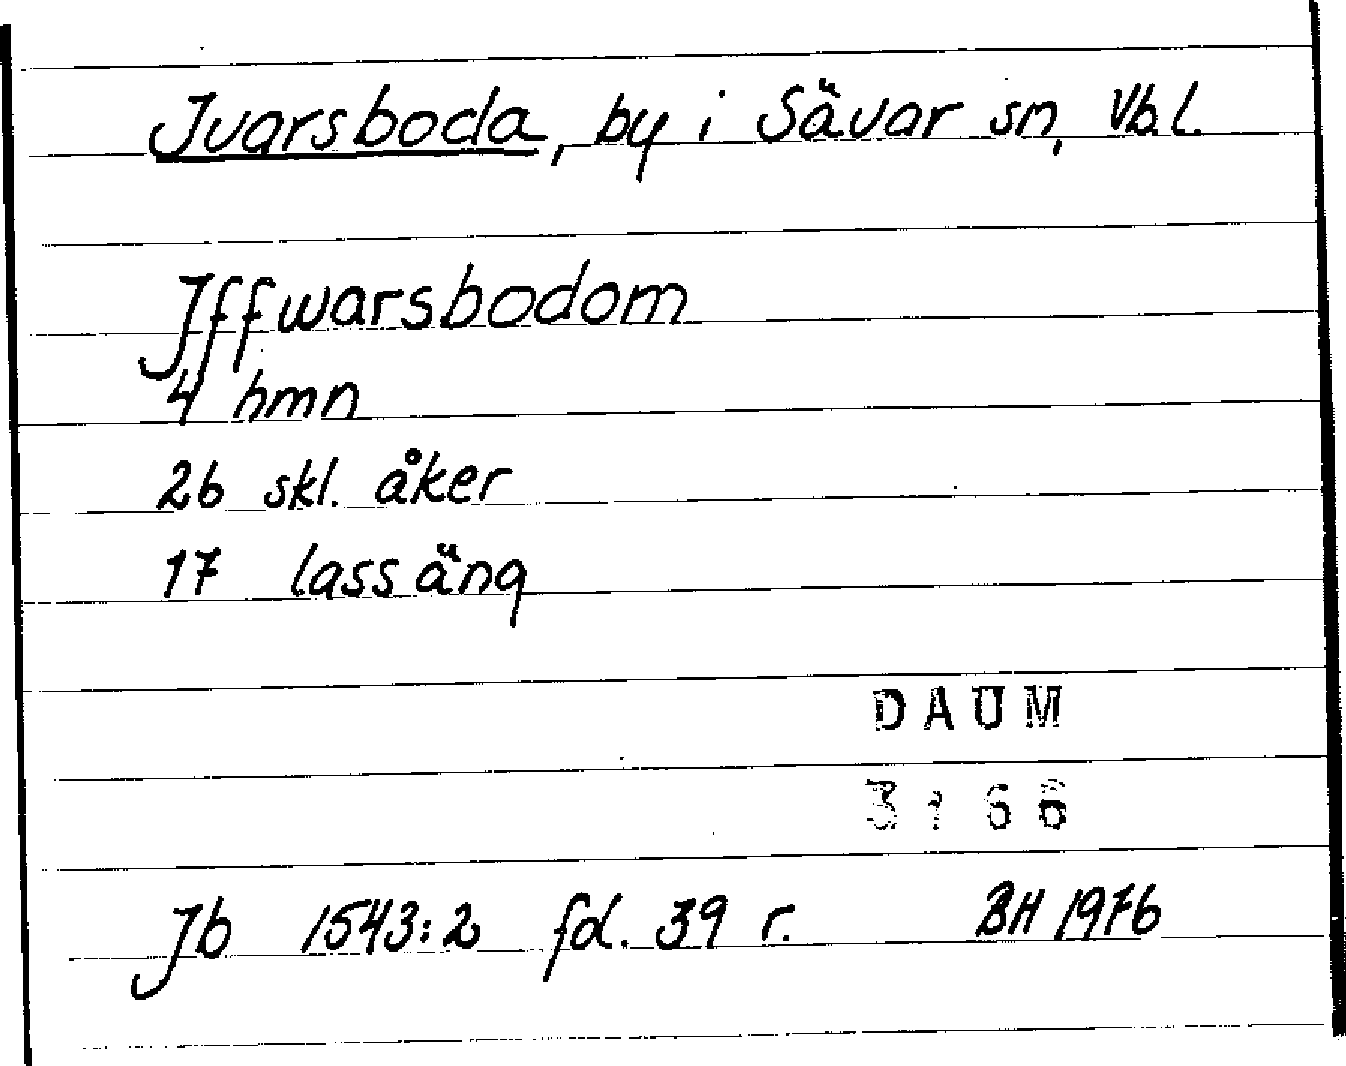 Jvarsboda, by i Sävar sn, Vb.l.
Jffwarsbodom
4 hmn
26 skl. åker
17 lass äng
DAUM
3766
Jb 1543:2 fol. 39 r. BH 1976